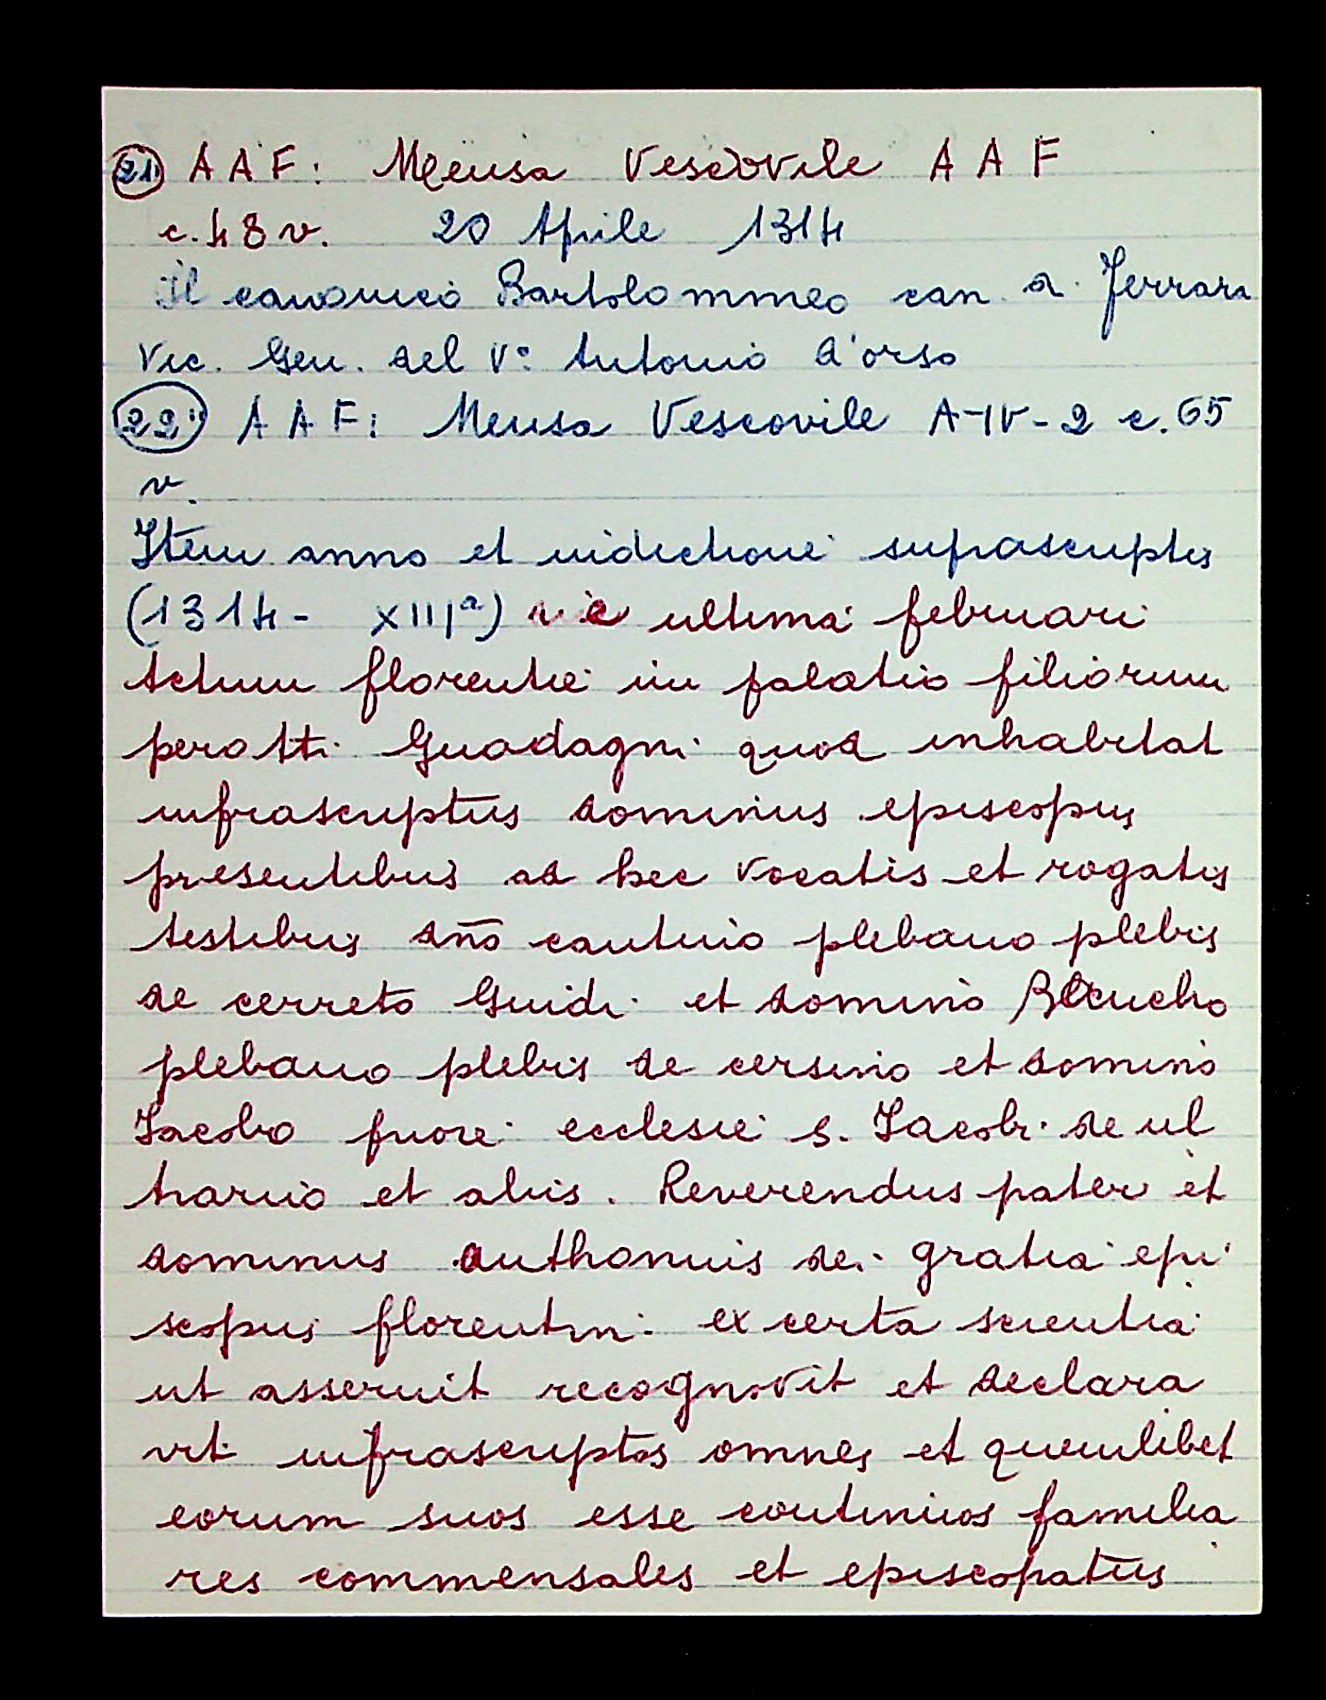 21) A A F: Mensa Vescovile A A F
c. 48 v. 20 Aprile 1314
Il canonico Bartolommeo can. a. Ferrara
Vic. Gen. del V° Antonio d'orso
22) A A F: Mensa Vescovile A-IV-2 c. 65
v.
Item anno et indictione suprascriptis
(1314- XIIIa) die ultima februari
Actum florentie in palatio filiorum
perotti Guadagni quod inhabitat
infrascriptus dominus episcopus
presentibus ad hec vocatis et rogatis
testibus dño cantino plebano plebis
de cerreto Guidi et domino
plebano plebis de cersino et domino
Jacobo priore ecclesie S. Jacobi de ul
trarno et aliis. Reverendus pater et
dominus anthonius dei gratia epi
scopus florentin. ex certa scientia
ut asseruit recognovit et declara
vit infrascriptos omnes et quemlibet
eorum suos esse continuos familia
res commensales et episcopatus